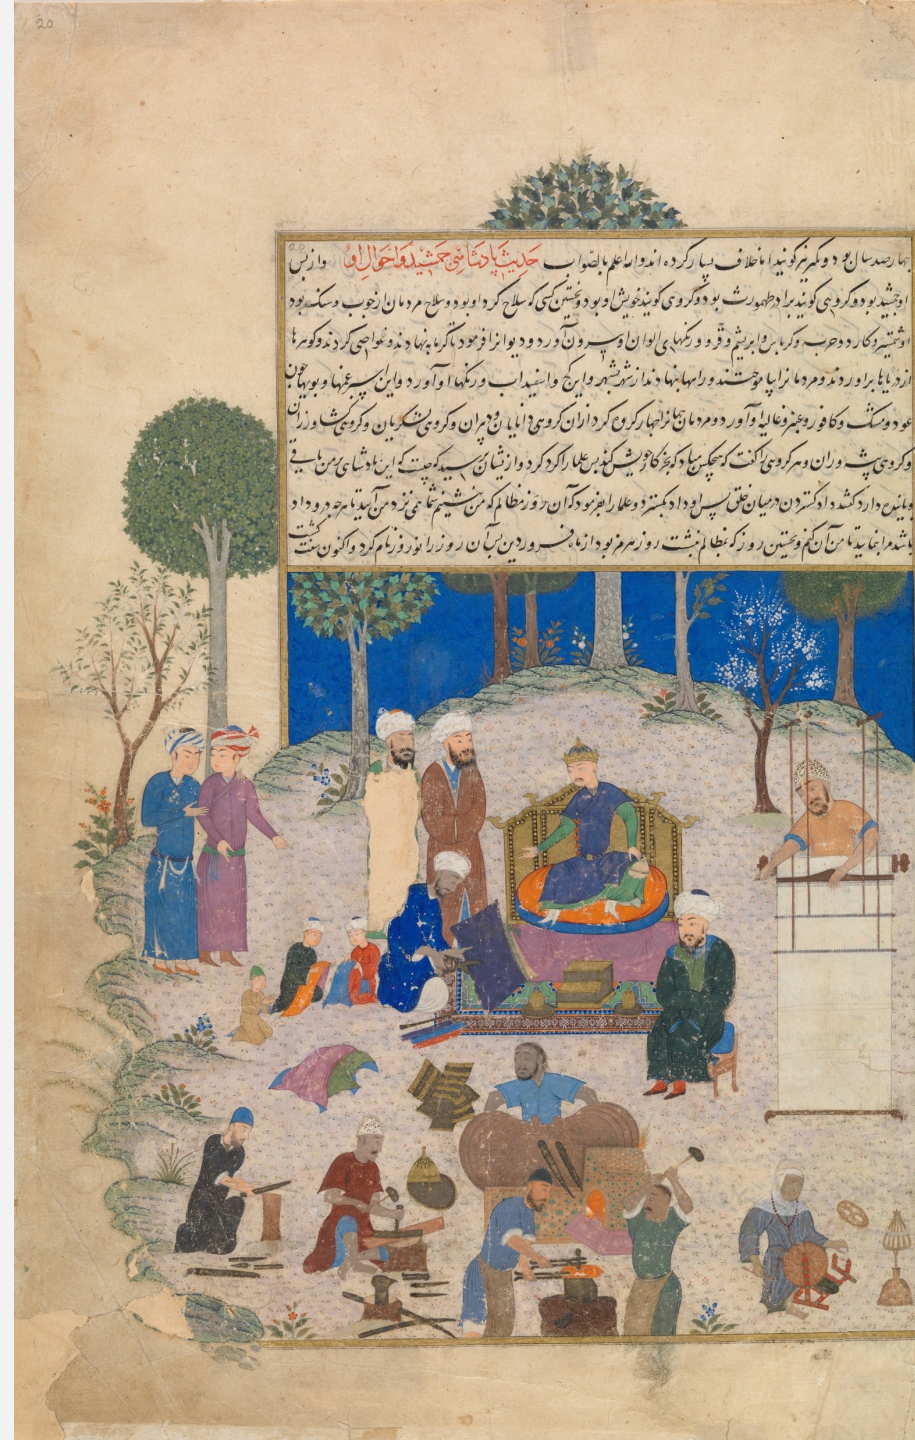 20
چهارصد سال بود و کمتر نیز گویند اما خلاف بسیار کرده اند والله اعلم بالصواب حدیث پادشاهی جمشید و احوال او و از پس
او جمشید بود و گروهی گویند برادر طهمورث بود و گروهی گویند خویش او بود و نخستین کسی که سلاح کرد او بود و سلاح مردمان از چوب و سنگ بود
او شمشیر و کارد و حربه و کرباس و ابریشم و قز و رنگهای الوان او بیرون آورد و دیوانرا فرمود تا گرمابه نهادند و غواصی کردند و گوهرها
از دریاها برآوردند و مردمانرا بیاموختند و راهها نهادند از شهر بشهر و این گچ و اسفیداب و رنگها او آورد و این اسپرغمها و بویها چون
عود و مشک و کافور و عنبر و غالیه او آورد و مردمان جهانرا چهار گروه کرد از آن گروهی دانایان و دبیران و گروهی لشکریان و گروهی کشاورزان
و گروهی پیشه وران و هر گروهی را گفت که هیچکس مباد که بجز کار خویش کند پس علما را گرد کرد و از یشان بپرسید که چیست که این پادشاهی بر من باقی
و پاینده دارد گفتند داد گستردن در میان خلق پس او داد بگسترد و علما را بفرمود که آن روز مظالم که من بنشینم شما همه نزد من آیید تا هر چه در و داد
باشد مرا بنمایید تا من آن کنم و نخستین روز که بمظالم بنشست روز هرمز بود از ماه فروردین پس آن روز را نوروز نام کرد و اکنون سنت گشت